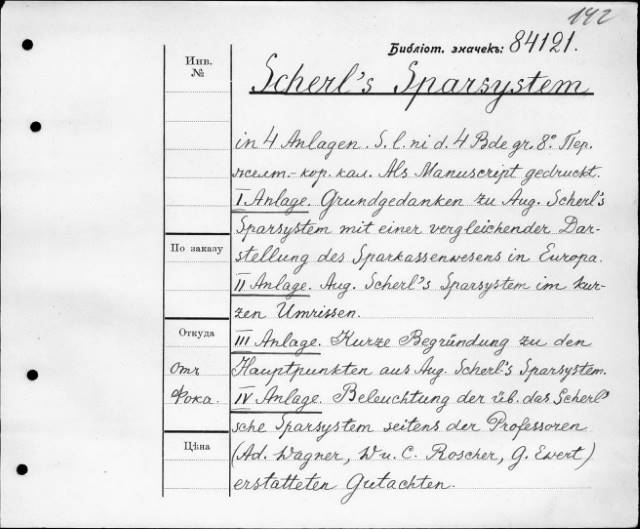 142
Библіот. значекъ: 84121.
Инв.
№
Scherl's Sparsystem
in 4 Anlagen. S. l. ni d. 4 Bde gr. 8°. Пер.
желт.-кор. кал. Als Manuscript gedruckt.
I Anlage. Grundgedanken zu Aug. Scherl's
Sparsystem mit einer vergleichender Dar-
По заказу
stellung des Sparkassenwesens in Europa.
II Anlage. Aug. Scherl's Sparsystem im kur-
zen Umrissen.
Откуда
III Anlage. Kurze Begründung zu den
Отъ
Hauptpunkten aus Aug. Scherl's Sparsystem.
Фока.
IV Anlage. Beleuchtung der üb. das Scherl'
sche Sparsystem seitens der Professoren
Цѣна
(Ad. Wagner, W u. C. Roscher, G. Ewert)
erstatteten Gutachten.